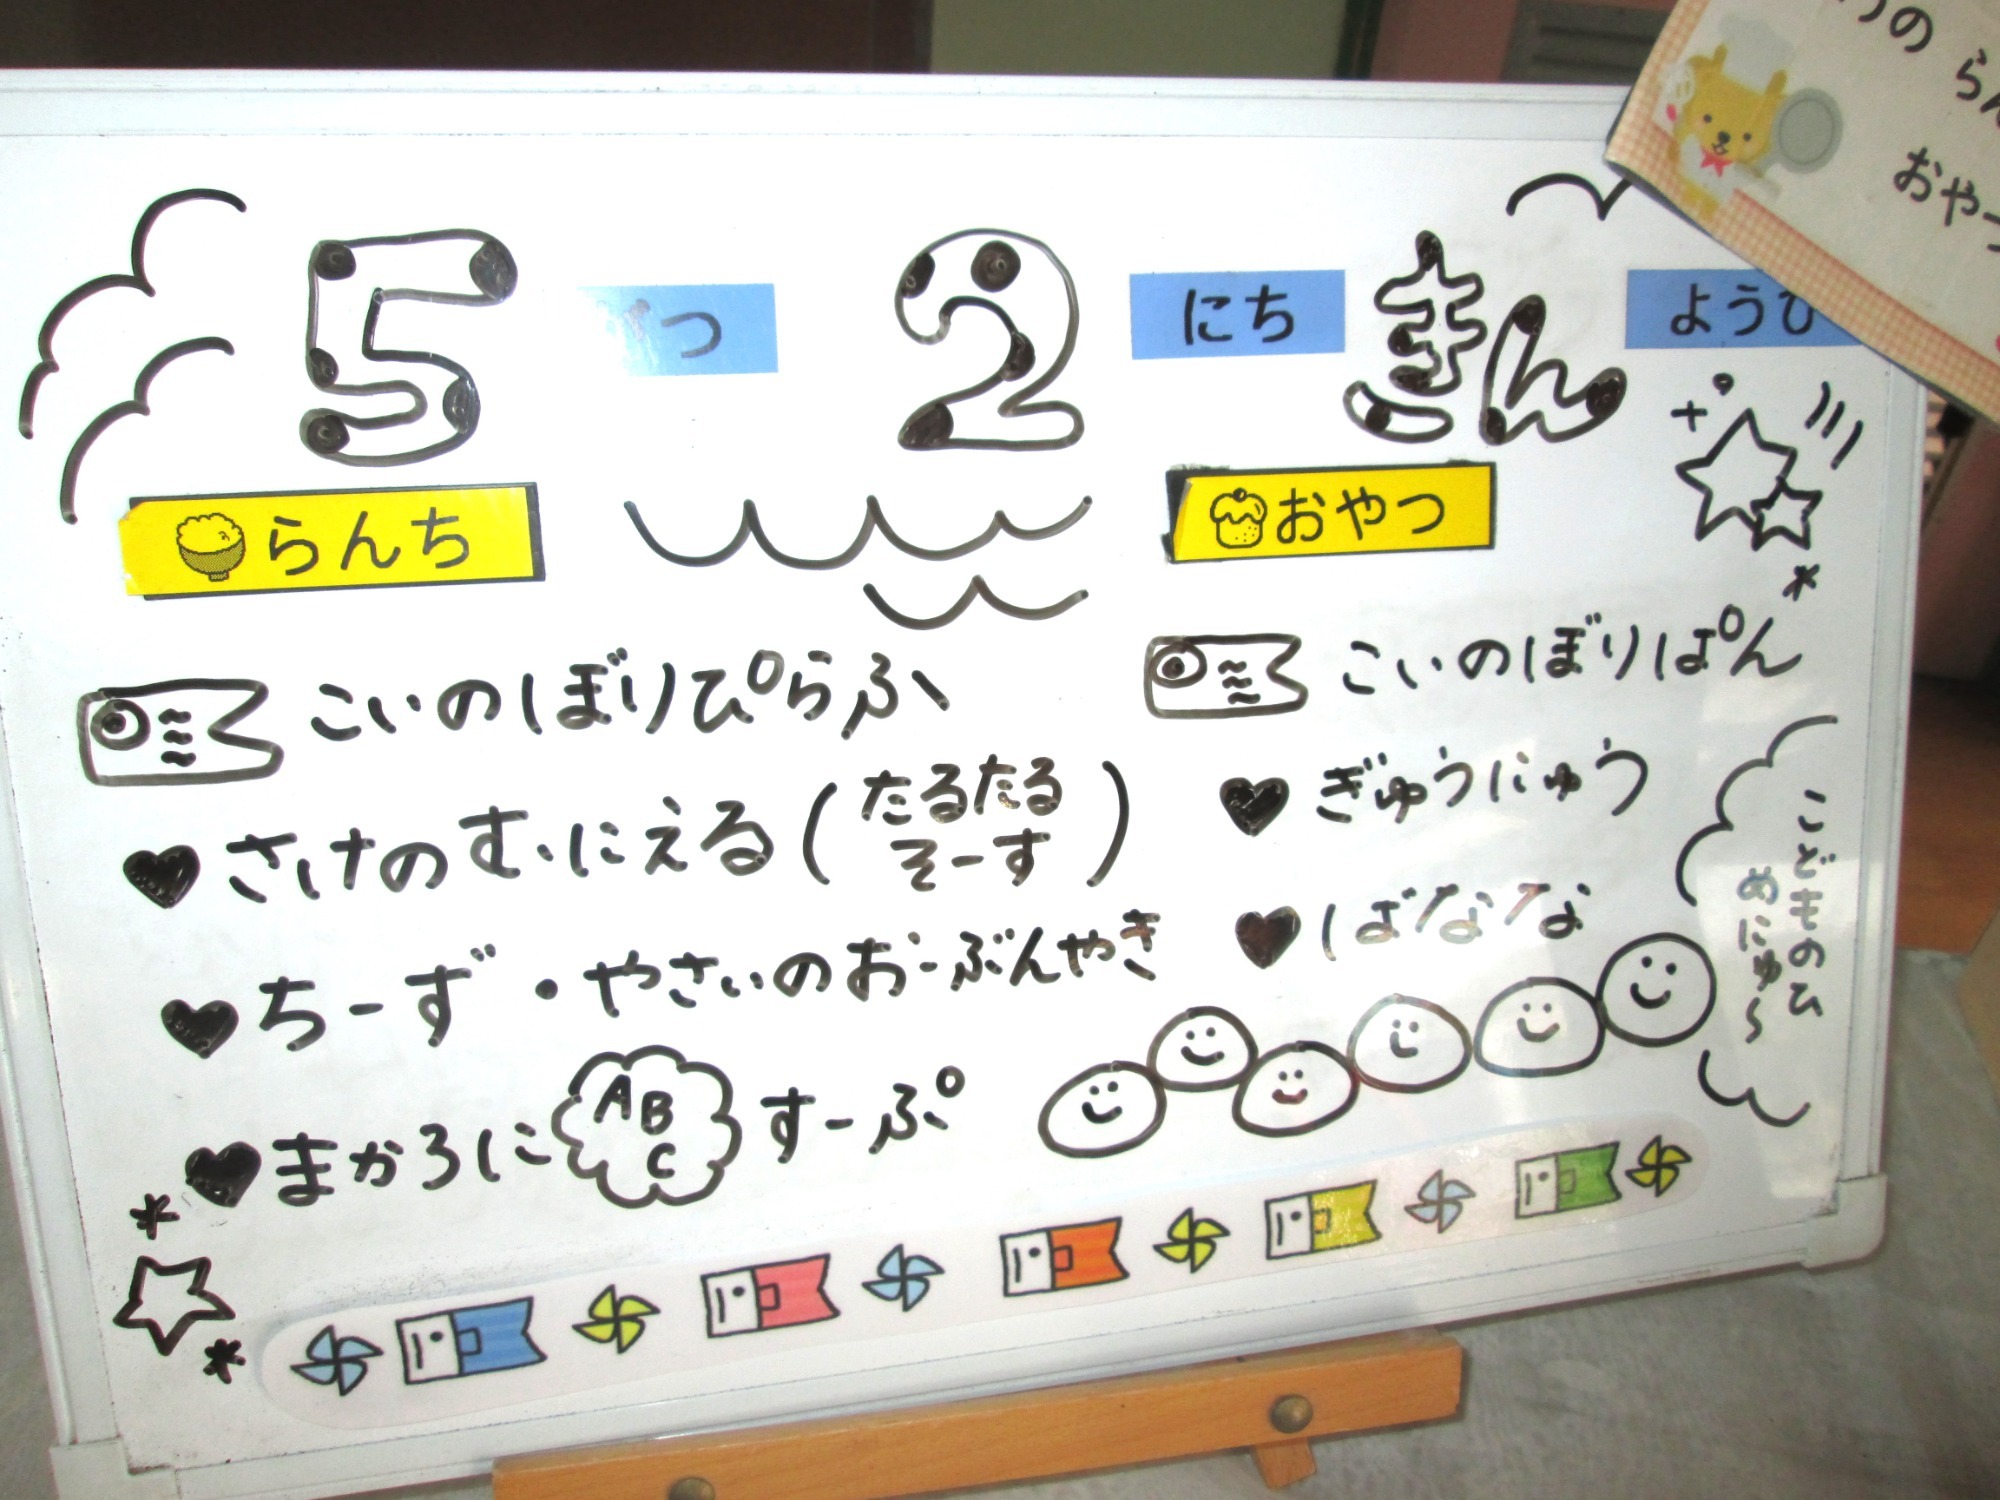 5 がつ 2 にち きん ようび
らんち
こいのぼりぴらふ
さけのむにえる(たるたるそーす)
ちーず・やさいのおーぶんやき
まかろに ABC すーぷ
おやつ
こいのぼりぱん
ぎゅうにゅう
ばなな
こどものひ
めにゅ〜
おやつ